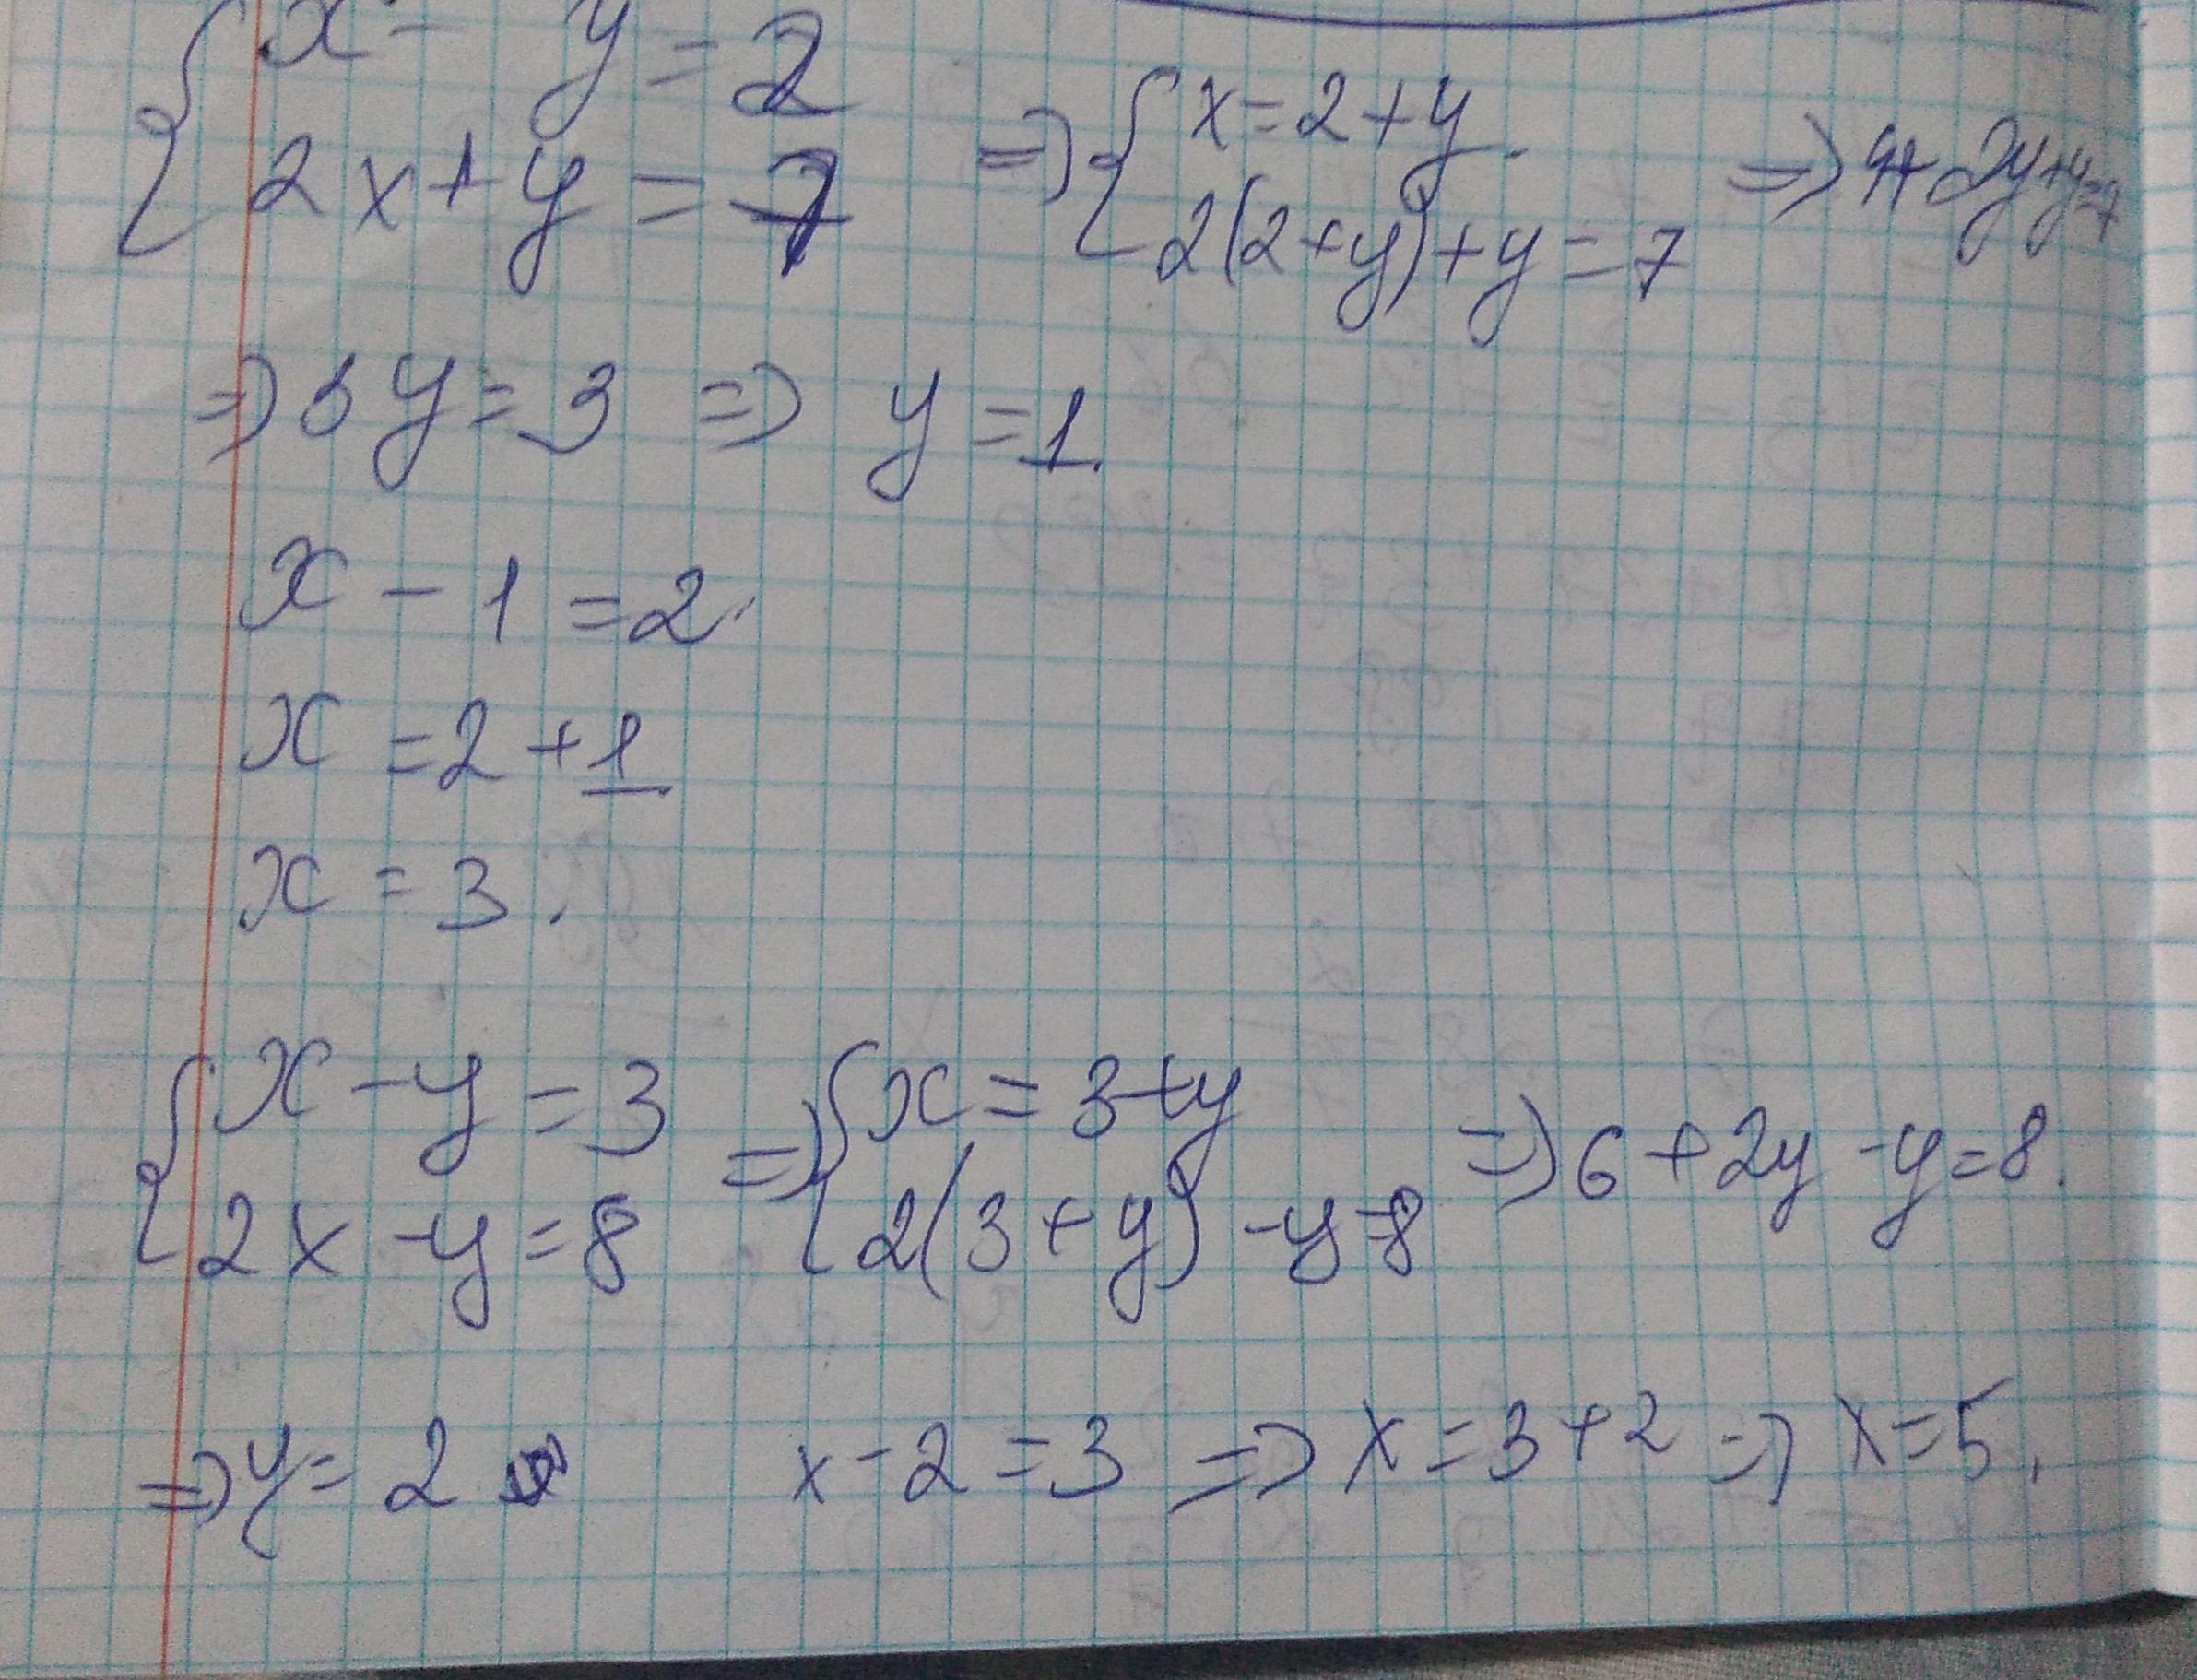 x - y = 2
2x + y = 7 => x = 2 + y
2(2 + y) + y = 7 => 4 + 2y + y = 7
=> 3y = 3 => y = 1.
x - 1 = 2.
x = 2 + 1.
x = 3.
x - y = 3
2x - y = 8 => x = 3 + y
2(3 + y) - y = 8 => 6 + 2y - y = 8.
=> y = 2 x - 2 = 3 => x = 3 + 2 => x = 5.